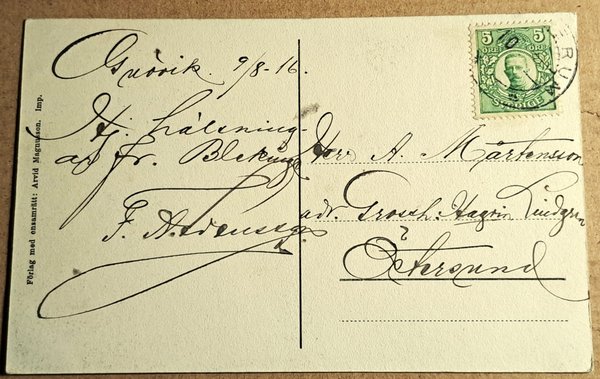 9/8-16.
Hj. hälsning-
ar fr. Blekinge
F. 
Herr A. Mårtensson
adr. Grossh. Hagvin Lindgren
Östersund
5 5
ÖRE ÖRE
SVERIGE
RUM
Förlag med ensamrätt: Arvid Magnusson. Imp.